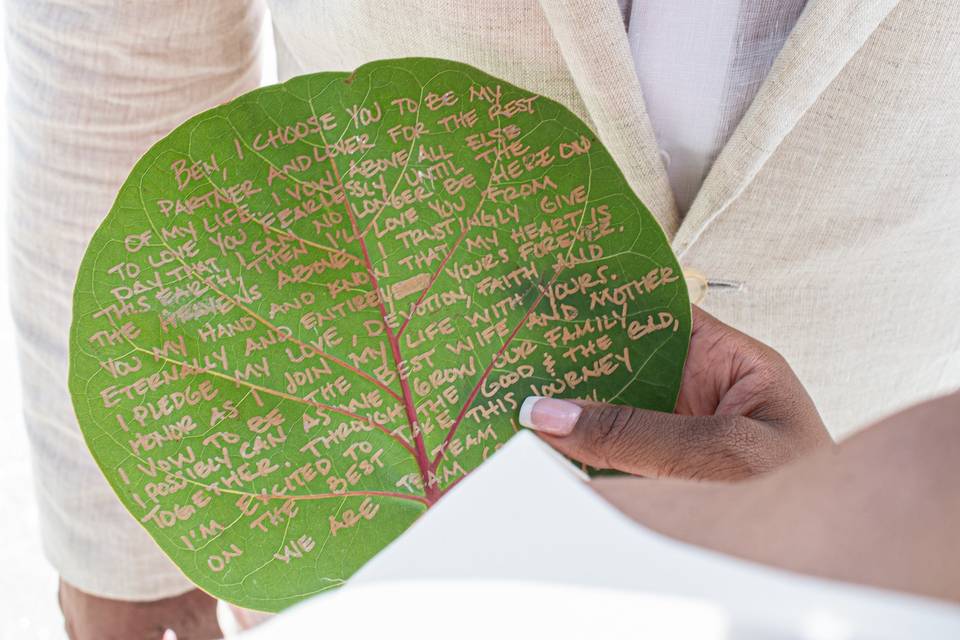 BEN, I CHOOSE YOU TO BE MY
PARTNER AND LOVER FOR THE REST
OF MY LIFE. I VOW ABOVE ALL ELSE
TO LOVE YOU FEARLESSLY UNTIL THE
DAY THAT I CAN NO LONGER BE HERE ON
THIS EARTH, THEN LOVE YOU FROM
THE HEAVENS ABOVE. I TRUSTINGLY GIVE
YOU MY HAND AND KNOW THAT MY HEART IS
ETERNALLY AND ENTIRELY YOURS FOREVER.
I PLEDGE MY LOVE, DEVOTION, FAITH AND
HONOR AS I JOIN MY LIFE WITH YOURS.
I VOW TO BE THE BEST WIFE AND MOTHER
I POSSIBLY CAN AS WE GROW OUR FAMILY
TOGETHER. THROUGH THE GOOD & THE BAD,
I'M EXCITED TO THIS JOURNEY
THE BEST TEAM
ON WE ARE TEAM